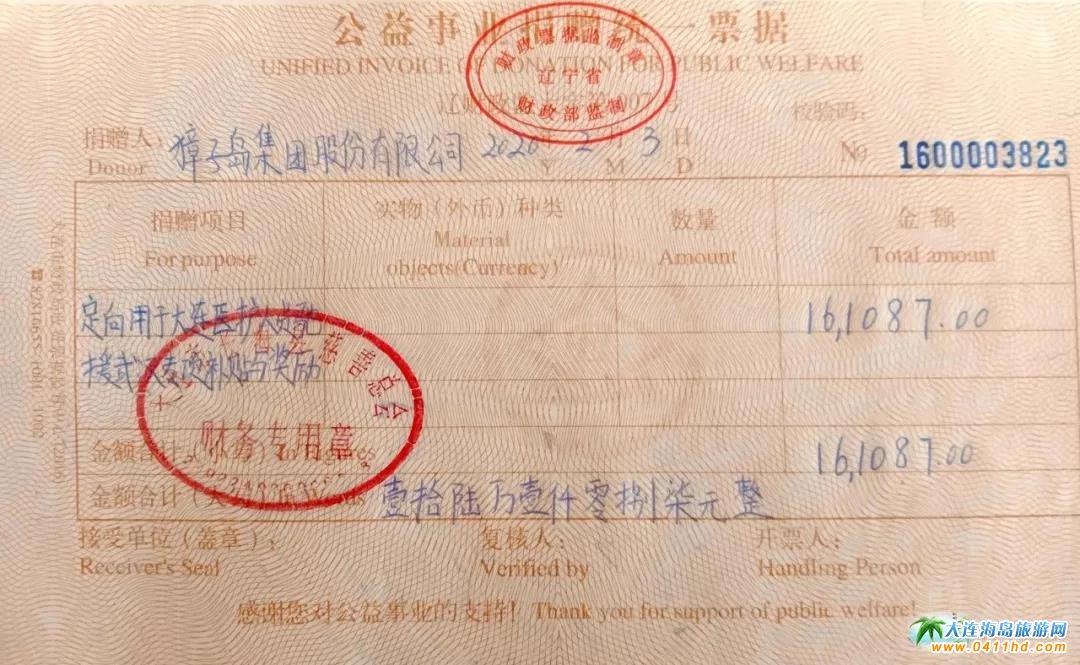 公益事业捐赠统一票据
UNIFIED INVOICE OF DONATION FOR PUBLIC WELFARE
财政票据监制章
辽宁省
财政部监制
校验码:
捐赠人: 獐子岛集团股份有限公司 2020 年 2 月 3 日
Donor Y M D
№ 1600003823
捐赠项目 实物（外币）种类 数量 金额
For purpose Material objects(Currency) Amount Total amount
定向用于大连医护人员驰 16,1087.00
援武汉专项补贴与奖励
慈善总会
财务专用章
金额合计 16,1087.00
金额合计 壹拾陆万壹仟零捌柒元整
接受单位（盖章）: 复核人: 开票人:
Receiver's Seal Verified by Handling Person
感谢您对公益事业的支持! Thank you for support of public welfare!
大连海岛旅游网
www.0411hd.com